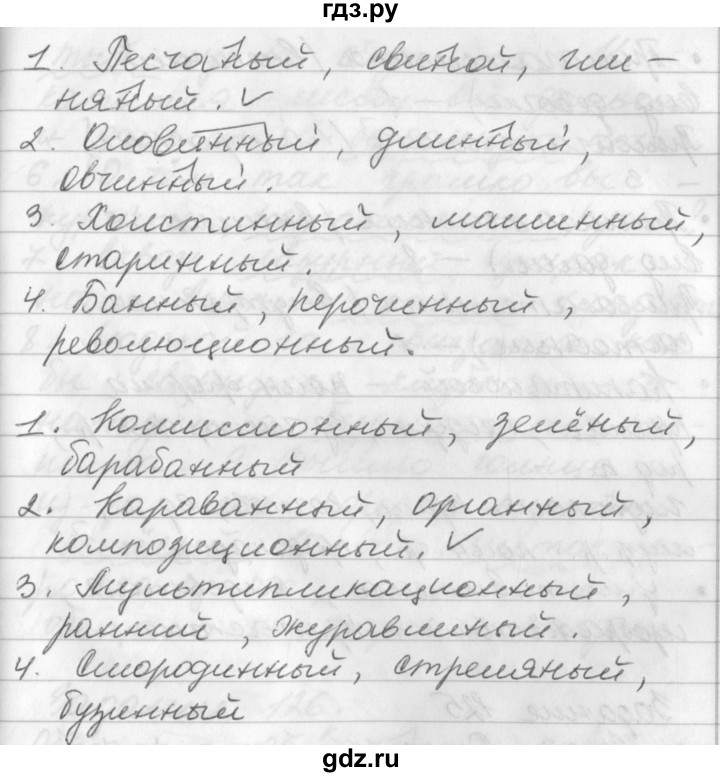 гдз.ру
1. Песчаный, свиной, гли-
няный. √
2. Оловянный, длинный,
овчинный.
3. Холстинный, машинный,
старинный.
4. Банный, перочинный,
революционный.
1. Комиссионный, зелёный,
барабанный
2. Караванный, органный,
композиционный. √
3. Мультипликационный,
ранний, журавлиный.
4. Смородинный, стреляный,
бузинный
gdz.ru